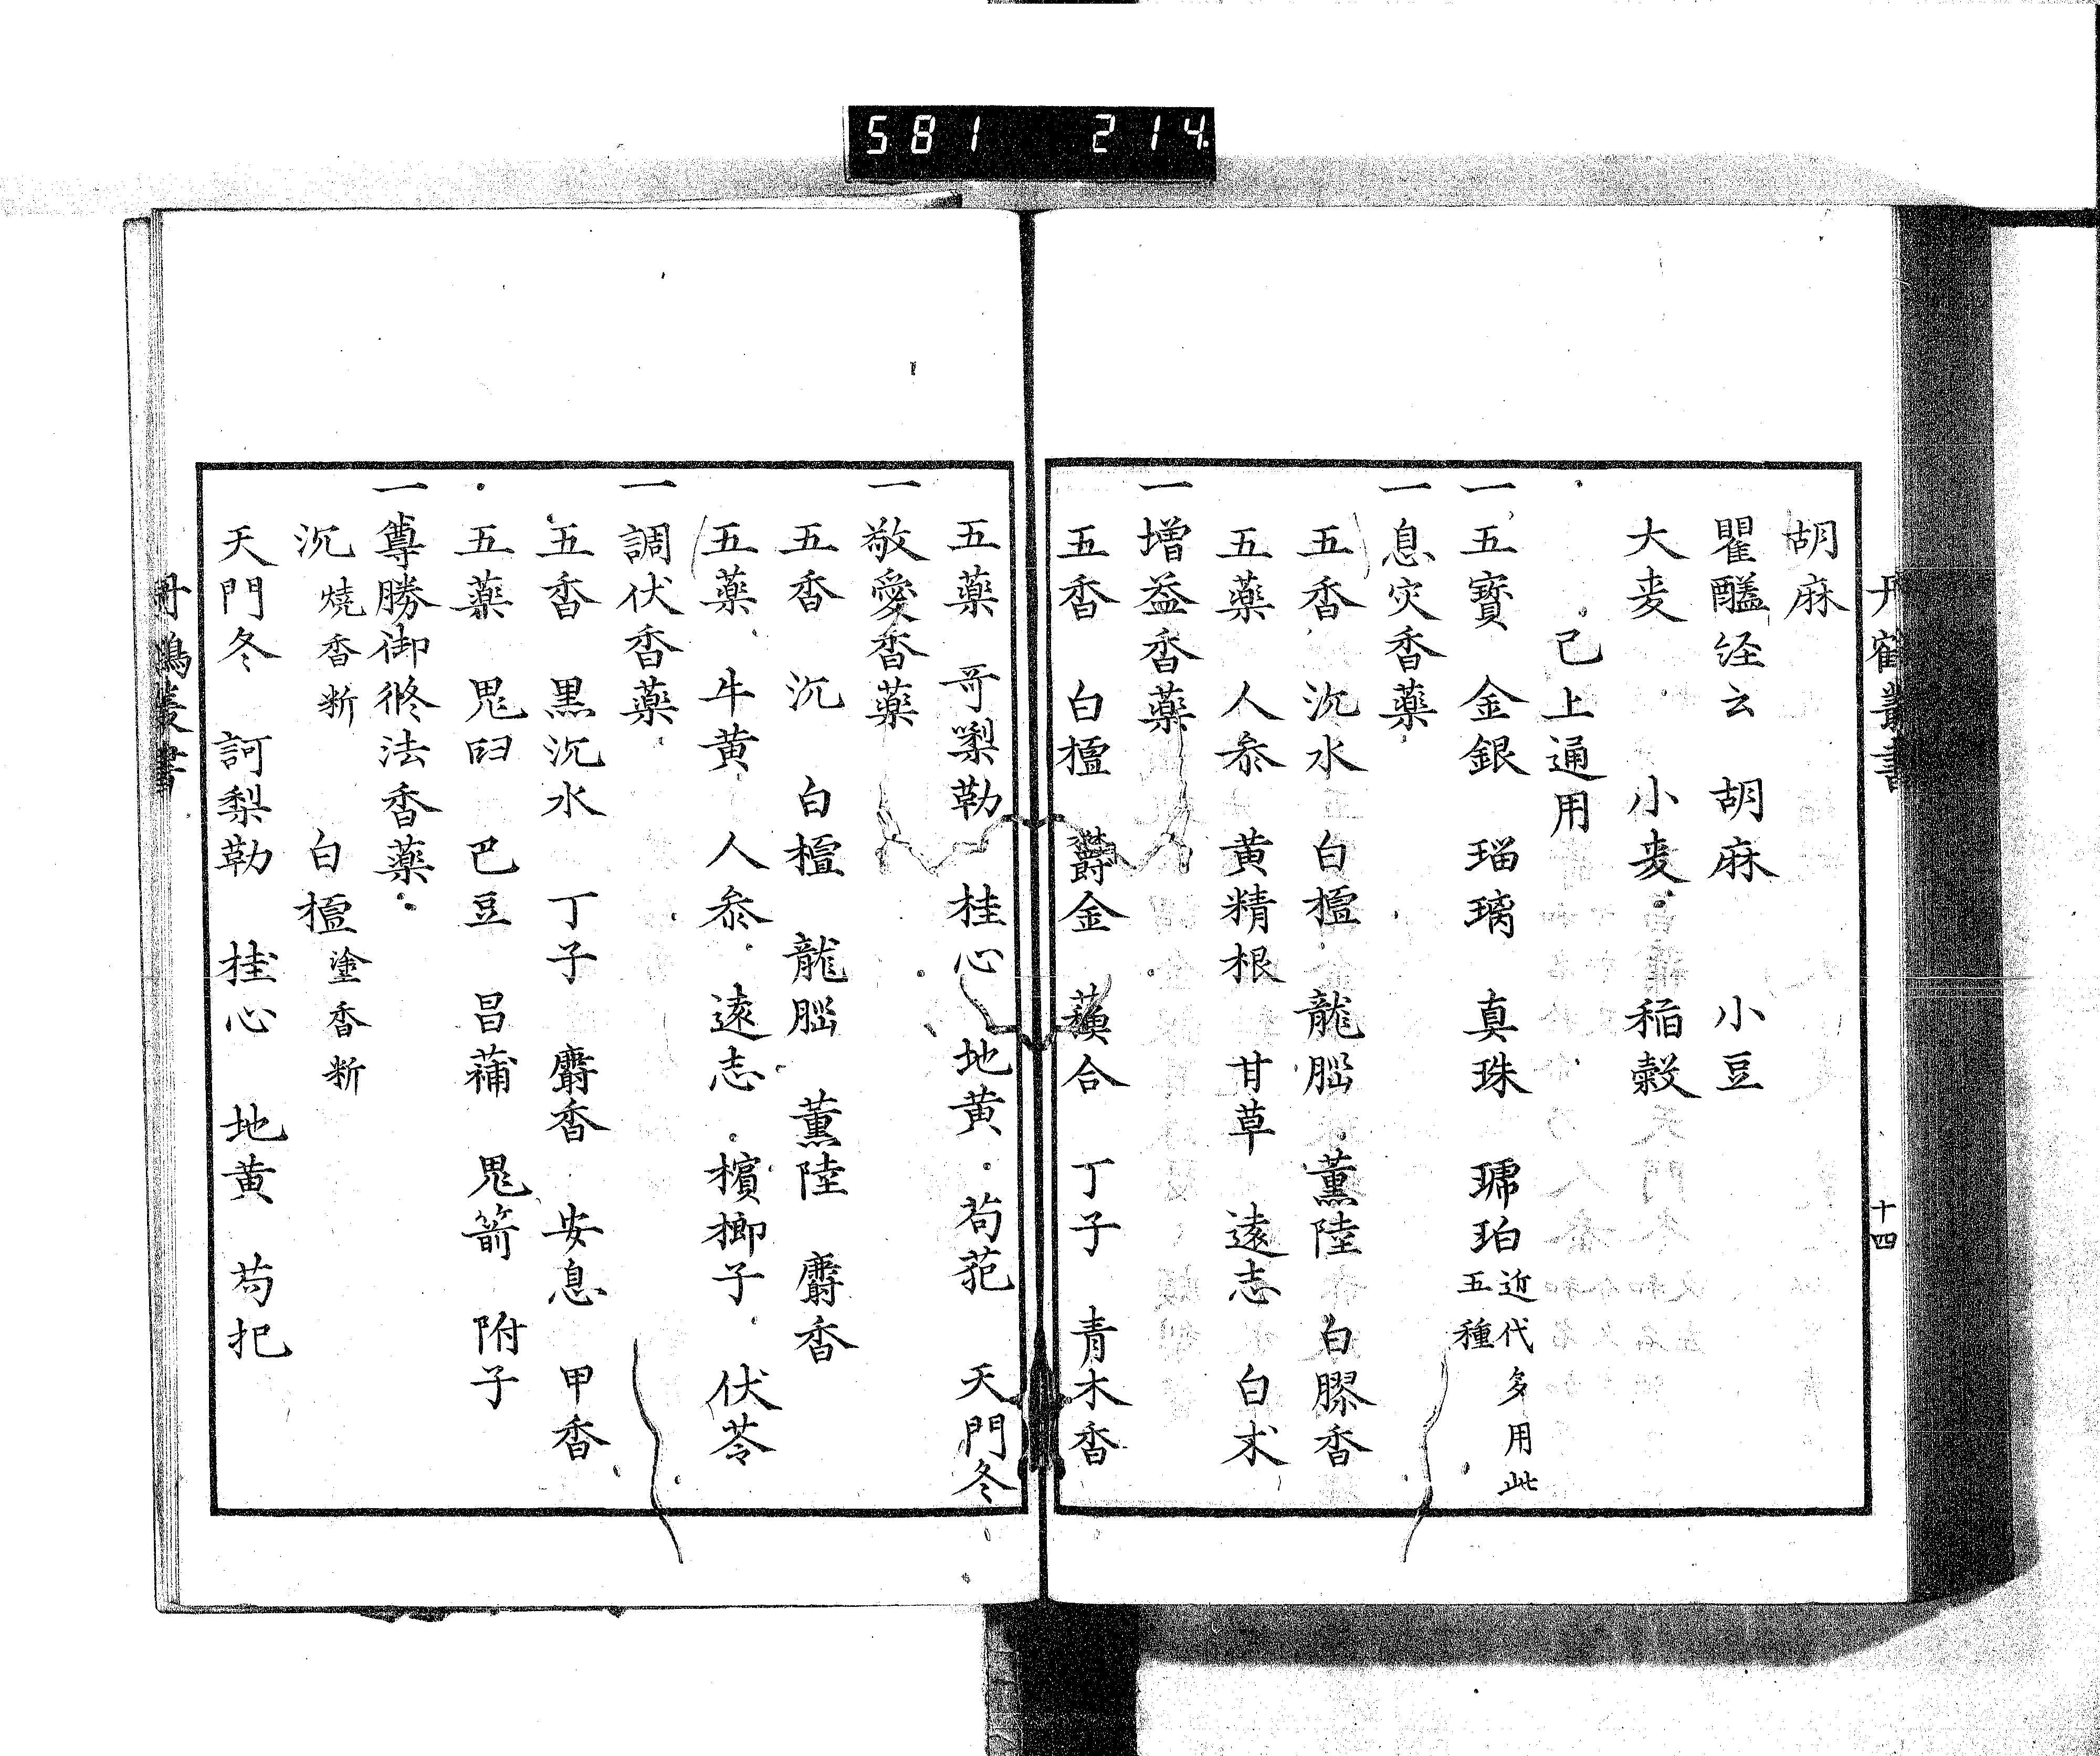 581 214
丹鶴叢書
十四
胡麻
瞿醯経云 胡麻 小豆
大麦 小麦 稲穀
已上通用
一五寳 金銀 瑠璃 真珠 琥珀 近代多用此五種
一息灾香薬
五香 沉水 白檀 龍脳 薫陸 白膠香
五薬 人参 黄精根 甘草 遠志 白朮
一増益香薬
五香 白檀 欝金 蘓合 丁子 青木香
五薬 哥梨勒 桂心 地黄 苟芑 天門冬
一敬愛香薬
五香 沉 白檀 龍脳 薫陸 麝香
五薬 牛黄 人参 遠志 檳榔子 伏苓
一調伏香薬
五香 黒沉水 丁子 麝香 安息 甲香
五薬 鬼臼 巴豆 昌蒲 鬼箭 附子
一尊勝御修法香薬
沉 焼香断 白檀 塗香断
天門冬 訶梨勒 桂心 地黄 苟杞
丹鶴叢書